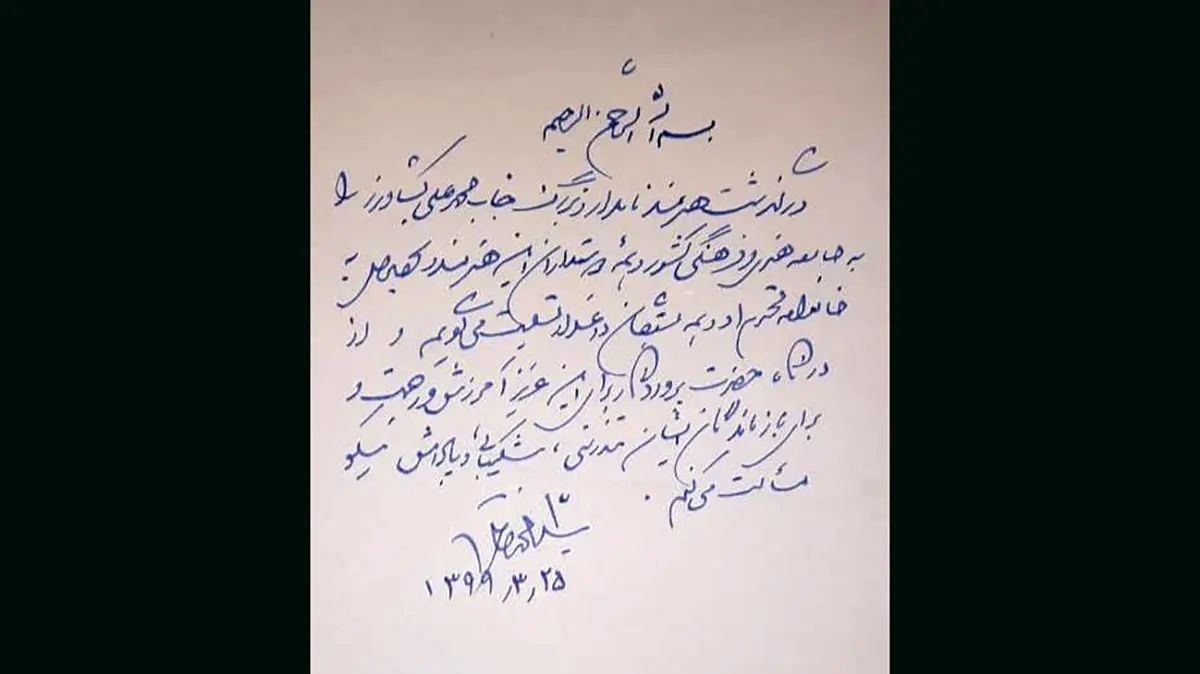 بسم الله الرحمن الرحیم
درگذشت هنرمند نامدار و بزرگ جناب محمدعلی کشاورز را
به جامعه هنری و فرهنگی کشور و همهٔ دوستداران این هنرمند و کهن اصیل به
خانواده محترم او و همه بستگان داغدار تسلیت می‌گویم و از
درگاه حضرت پروردگار برای این عزیز آمرزش و رحمت و
برای بازماندگان ایشان تندرستی، شکیبایی و پاداش نیکو
مسئلت می‌کنم.
سید محمد خاتمی
۱۳۹۹٫۳٫۲۵